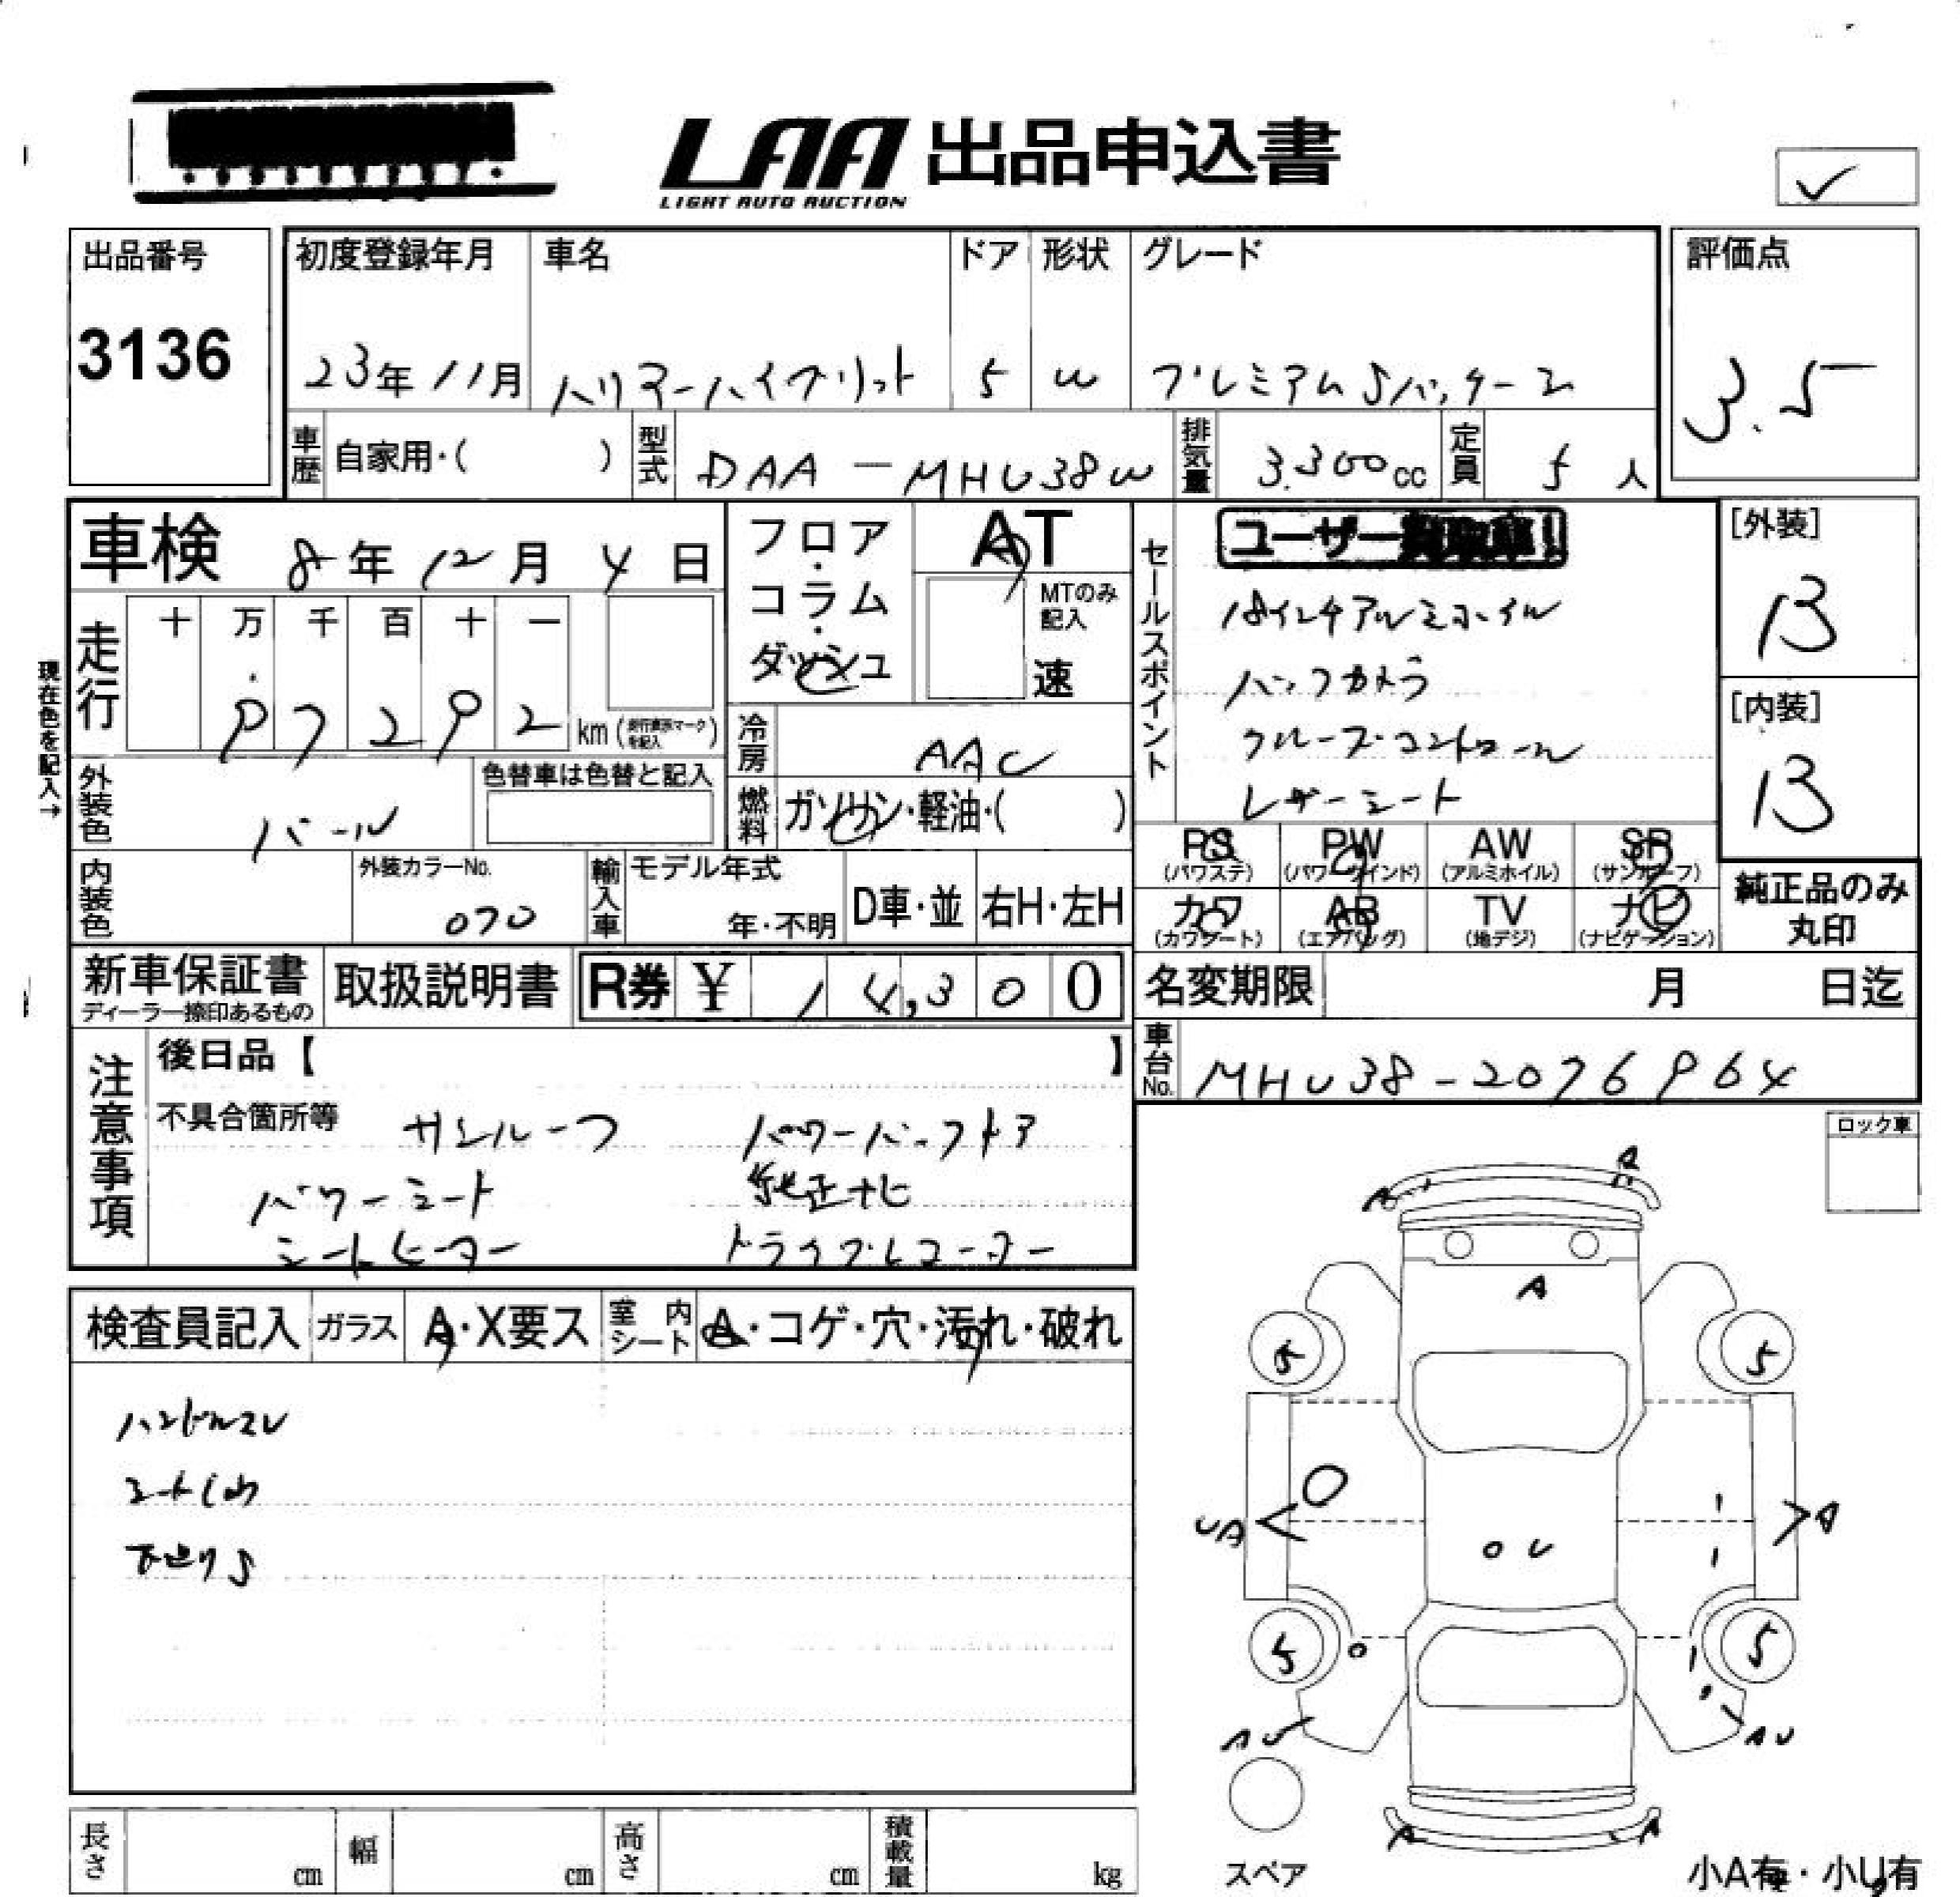 LAA 出品申込書
LIGHT AUTO AUCTION
出品番号
3136
初度登録年月 車名 ドア 形状 グレード
23年11月 ハリアーハイブリット 5 W プレミアムSパッケージ
評価点
3.5
車歴 自家用・( ) 型式 DAA-MHU38W 排気量 3.300cc 定員 5人
車検 8年12月4日
フロア・コラム・ダッシュ
AT
MTのみ記入
速
セールスポイント
ユーザー
18インチアルミホイル
バックカメラ
クルーズコントロール
レザーシート
[外装]
B
[内装]
B
現在色を記入→
走行
十 万 千 百 十 一
97292 km
冷房 AAC
外装色 パール
色替車は色替と記入
燃料 ガソリン・軽油・( )
PS (パワステ) PW (パワーウインド) AW (アルミホイル) SR (サンルーフ)
カワ (カワシート) AB (エアバッグ) TV (地デジ) ナビ (ナビゲーション)
純正品のみ
丸印
内装色
外装カラーNo.
070
輸入車 モデル年式
年・不明 D車・並 右H・左H
新車保証書
ディーラー捺印あるもの
取扱説明書 R券 ¥ 14,300
名変期限 月 日迄
車台No. MHU38-2076964
注意事項
後日品【 】
不具合箇所等 サンルーフ パワーバックドア
パワーシート 純正ナビ
シートヒーター ドライブレコーダー
ロック車
検査員記入 ガラス A・X要ス 室内シート A・コゲ・穴・汚れ・破れ
ハンドルスレ
シートしわ
下廻りS
A
A
A
5
5
UA
A
U
5
5
AU
AU
A
A
スペア
小A有・小U有
長さ cm 幅 cm 高さ cm 積載量 kg